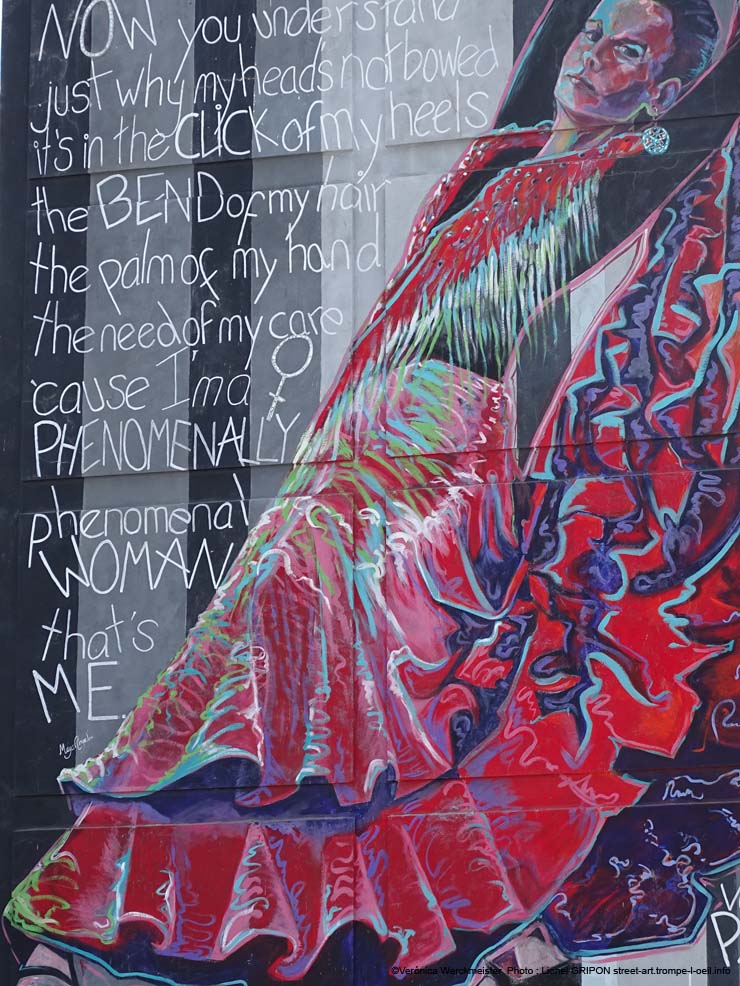 NOW you understand
just why my head's not bowed
it's in the CLICK of my heels
the BEND of my hair
the palm of my hand
the need of my care
'cause I'm a
PHENOMENALLY
phenomenal
WOMAN
that's
ME.
©Verónica Werckmeister Photo : Lionel GRIPON street-art.trompe-l-oeil.info